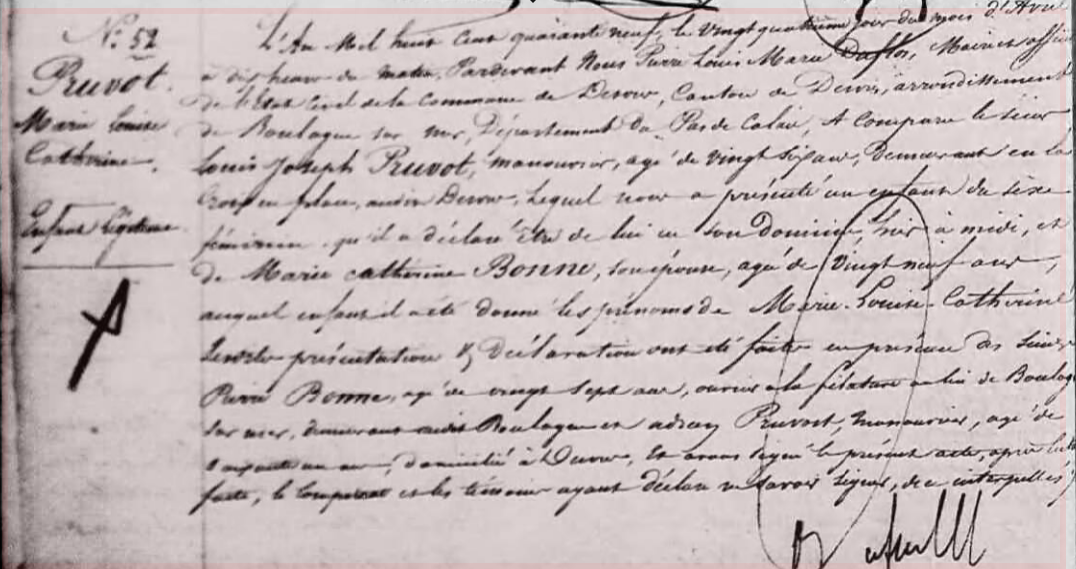 N.° 52
Pruvot.
Marie Louise
Catherine.
Enfant Légitime
L'An Mil huit Cent quarante neuf, le Vingt quatrième jour du mois d'Avril
à dix heures du matin, Pardevant Nous Pierre Louis Marie Maire et officier
de l'Etat Civil de la Commune de Desvres, Canton de Desvres, arrondissement
de Boulogne sur mer, Département du Pas de Calais, A Comparu le sieur
Louis Joseph Pruvot, manouvrier, agé de vingt six ans, Demeurant en la
en place, audit Desvres, Lequel nous a présenté un enfant du sèxe
féminin, qu'il a déclaré être de lui en son Domicile, hier à midi, et
de Marie Catherine Bonne, son épouse, agée de vingt neuf ans,
auquel enfant il a été donné les prénoms de Marie-Louise-Catherine
présentation & Déclaration ont été faites en présence des Sieurs
Pierre Bonne, agé de vingt sept ans, ouvrier à la filature de lin de Boulogne
sur mer, demeurant audit Boulogne et Pruvost, manouvrier, agé de
ans, domicilié à Desvres, Et avons signé le présent acte, après lecture
faite, le Comparant et les témoins ayant déclaré ne savoir signer, de ce interpellés